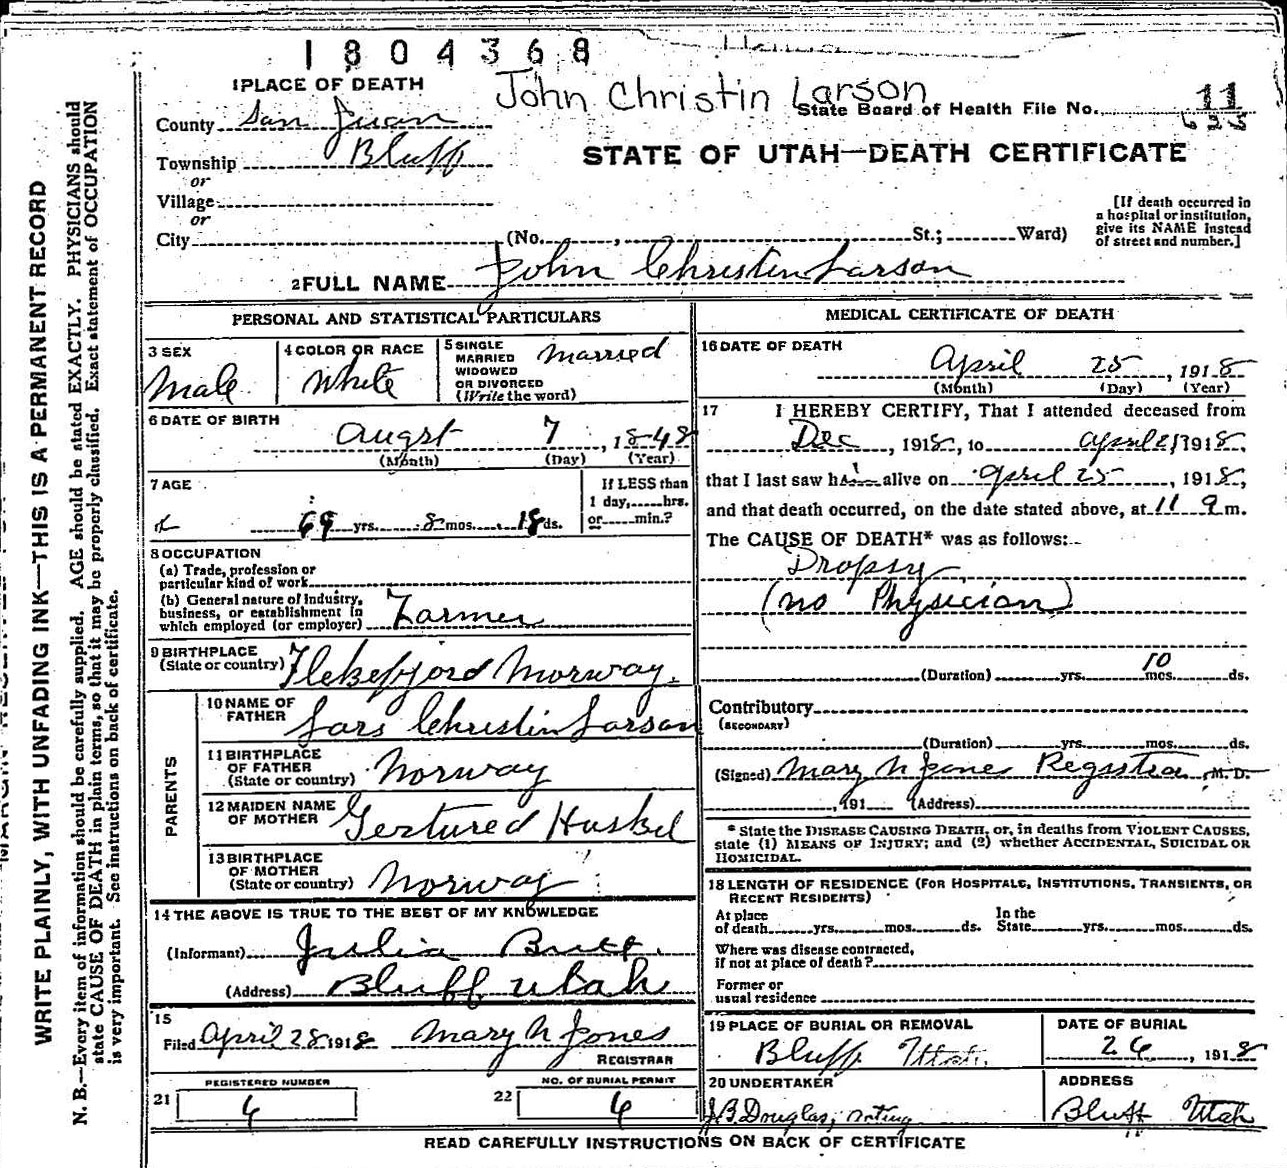 1804368
John Christin Larson
1 PLACE OF DEATH
State Board of Health File No. 11
625
County San Juan
Township Bluff
STATE OF UTAH—DEATH CERTIFICATE
or
Village
or
City (No. , St.; Ward)
[If death occurred in
a hospital or institution,
give its NAME instead
of street and number.]
2 FULL NAME John Christin Larson
PERSONAL AND STATISTICAL PARTICULARS
3 SEX
Male
4 COLOR OR RACE
White
5 SINGLE
MARRIED
WIDOWED
OR DIVORCED
(Write the word)
married
6 DATE OF BIRTH
Augst 7, 1848
(Month) (Day) (Year)
7 AGE
69 yrs. 8 mos. 18 ds.
If LESS than
1 day, hrs.
or min.?
8 OCCUPATION
(a) Trade, profession or
particular kind of work
(b) General nature of Industry,
business, or establishment in
which employed (or employer) Farmer
9 BIRTHPLACE
(State or country) Flekefjord Norway.
PARENTS
10 NAME OF
FATHER Lars Christin Larson
11 BIRTHPLACE
OF FATHER
(State or country) Norway
12 MAIDEN NAME
OF MOTHER Gertured Huskel
13 BIRTHPLACE
OF MOTHER
(State or country) Norway
14 THE ABOVE IS TRUE TO THE BEST OF MY KNOWLEDGE
(Informant) Julia Butt.
(Address) Bluff Utah
15
Filed April 28 1918 Mary N Jones
REGISTRAR
REGISTERED NUMBER
21 6
NO. OF BURIAL PERMIT
22 6
MEDICAL CERTIFICATE OF DEATH
16 DATE OF DEATH
April 25, 1918
(Month) (Day) (Year)
17 I HEREBY CERTIFY, That I attended deceased from
Dec, 1918, to April 25 1918,
that I last saw him alive on April 25, 1918,
and that death occurred, on the date stated above, at 11 9 m.
The CAUSE OF DEATH* was as follows:
Dropsy
(no Physician)
(Duration) yrs. 10 mos. ds.
Contributory
(SECONDARY)
(Duration) yrs. mos. ds.
(Signed) Mary N Jones Registrar, M. D.
, 191 (Address)
* State the DISEASE CAUSING DEATH, or, in deaths from VIOLENT CAUSES,
state (1) MEANS OF INJURY; and (2) whether ACCIDENTAL, SUICIDAL OR
HOMICIDAL.
18 LENGTH OF RESIDENCE (FOR HOSPITALS, INSTITUTIONS, TRANSIENTS, OR
RECENT RESIDENTS)
At place
of death yrs. mos. ds.
In the
State yrs. mos. ds.
Where was disease contracted,
if not at place of death?
Former or
usual residence
19 PLACE OF BURIAL OR REMOVAL
Bluff Utah.
DATE OF BURIAL
26, 1918
20 UNDERTAKER
J.B. Douglas, Acting
ADDRESS
Bluff Utah
READ CAREFULLY INSTRUCTIONS ON BACK OF CERTIFICATE
WRITE PLAINLY, WITH UNFADING INK—THIS IS A PERMANENT RECORD
N. B.—Every item of information should be carefully supplied. AGE should be stated EXACTLY. PHYSICIANS should
state CAUSE OF DEATH in plain terms, so that it may be properly classified. Exact statement of OCCUPATION
is very important. See instructions on back of certificate.